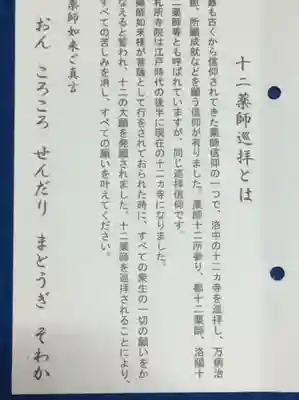 十二薬師巡拝とは
最も古くから信仰されてきた薬師信仰の一つで、洛中の十二カ寺を巡拝し、万病治
癒、所願成就などを願う信仰が有りました。薬師十二所参り、都十二薬師、洛陽十
二薬師等とも呼ばれていますが、同じ巡拝信仰です。
札所寺院は江戸時代の後半に現在の十二カ寺になりました。
薬師如来様が菩薩として行をされておられた時に、すべての衆生の一切の願いをか
なえると誓われ、十二の大願を発願されました。十二薬師を巡拝されることにより、
すべての苦しみを消し、すべての願いを叶えてください。
薬師如来ご真言
おん ころころ せんだり まとうぎ そわか